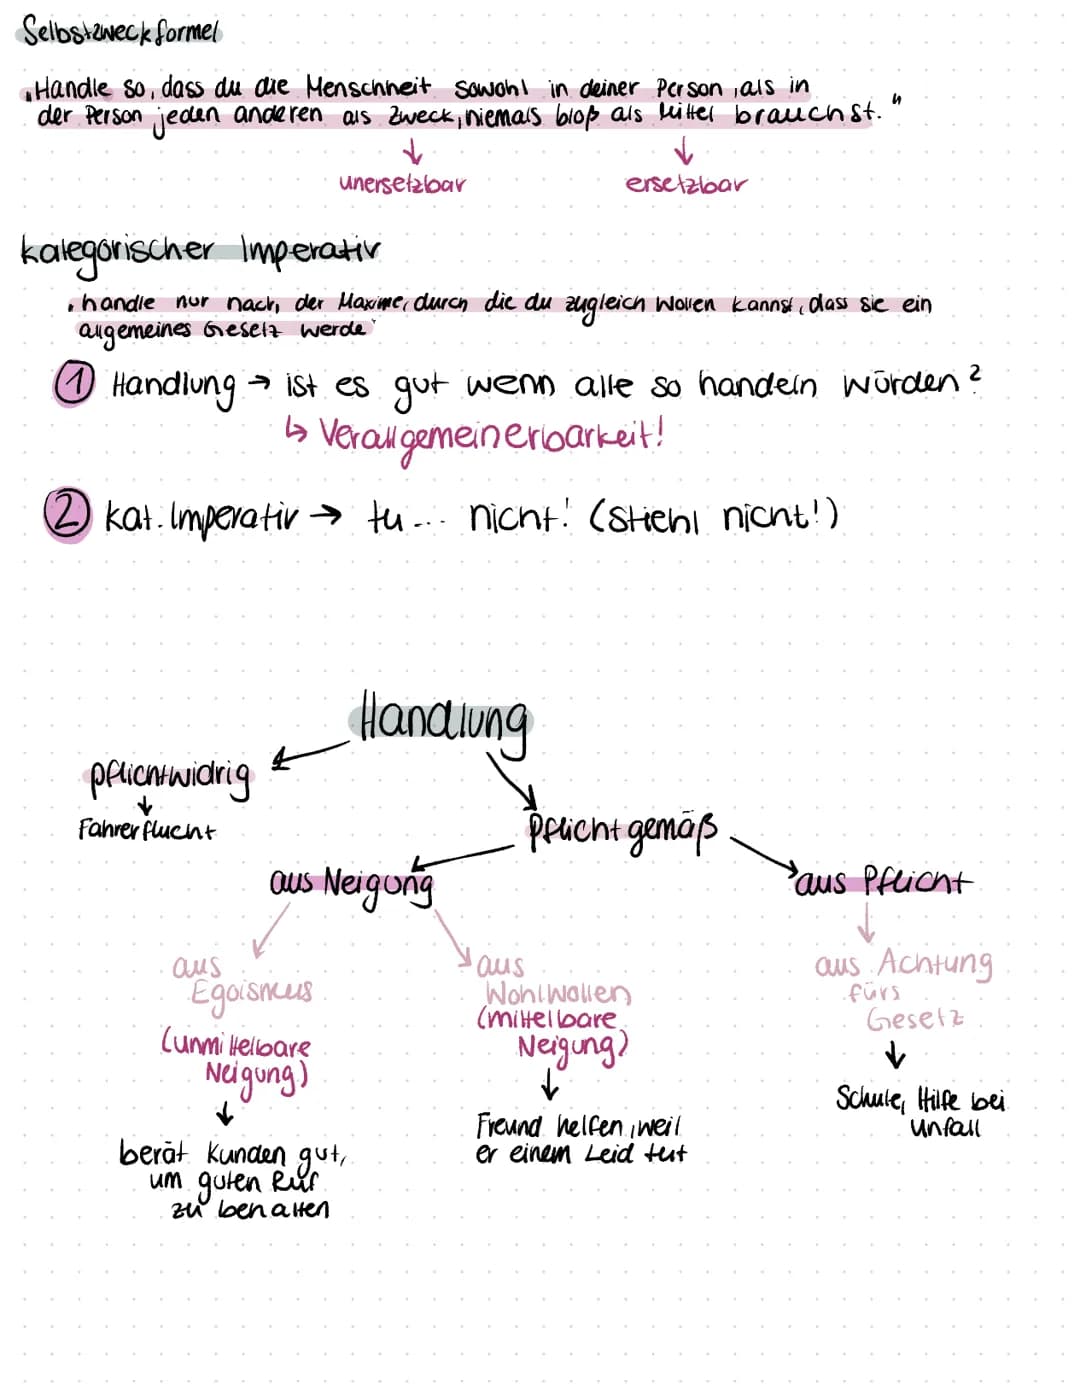 Selbstzweckformel
„Handle so, dass du die Menschheit sowohl in deiner Person, als in
der Person jeden anderen als Zweck, niemals bloß als Mittel brauchst."
unersetzbar
ersetzbar
kategorischer Imperativ
„handle nur nach, der Maxime, durch die du zugleich wollen kannst, dass sie ein
allgemeines Gesetz werde"
1 Handlung → ist es gut wenn alle so handeln würden?
↳ Verallgemeinerbarkeit!
2 kat. Imperativ → tu... nicht! (stiehl nicht!)
Handlung
pflichtwidrig
Fahrerflucht
pflichtgemäß
aus Neigung
aus Pflicht
aus
Egoismus
(unmittelbare
Neigung)
berät Kunden gut,
um guten Ruf
zu behalten
aus
Wohlwollen
(mittelbare
Neigung)
Freund helfen, weil
er einem Leid tut
aus Achtung
fürs
Gesetz
Schule, Hilfe bei
Unfall